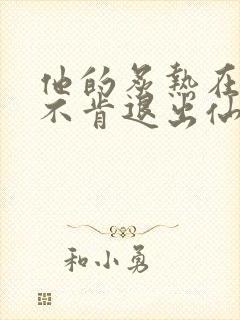 他的炙热在
不肯退出仙
和小勇